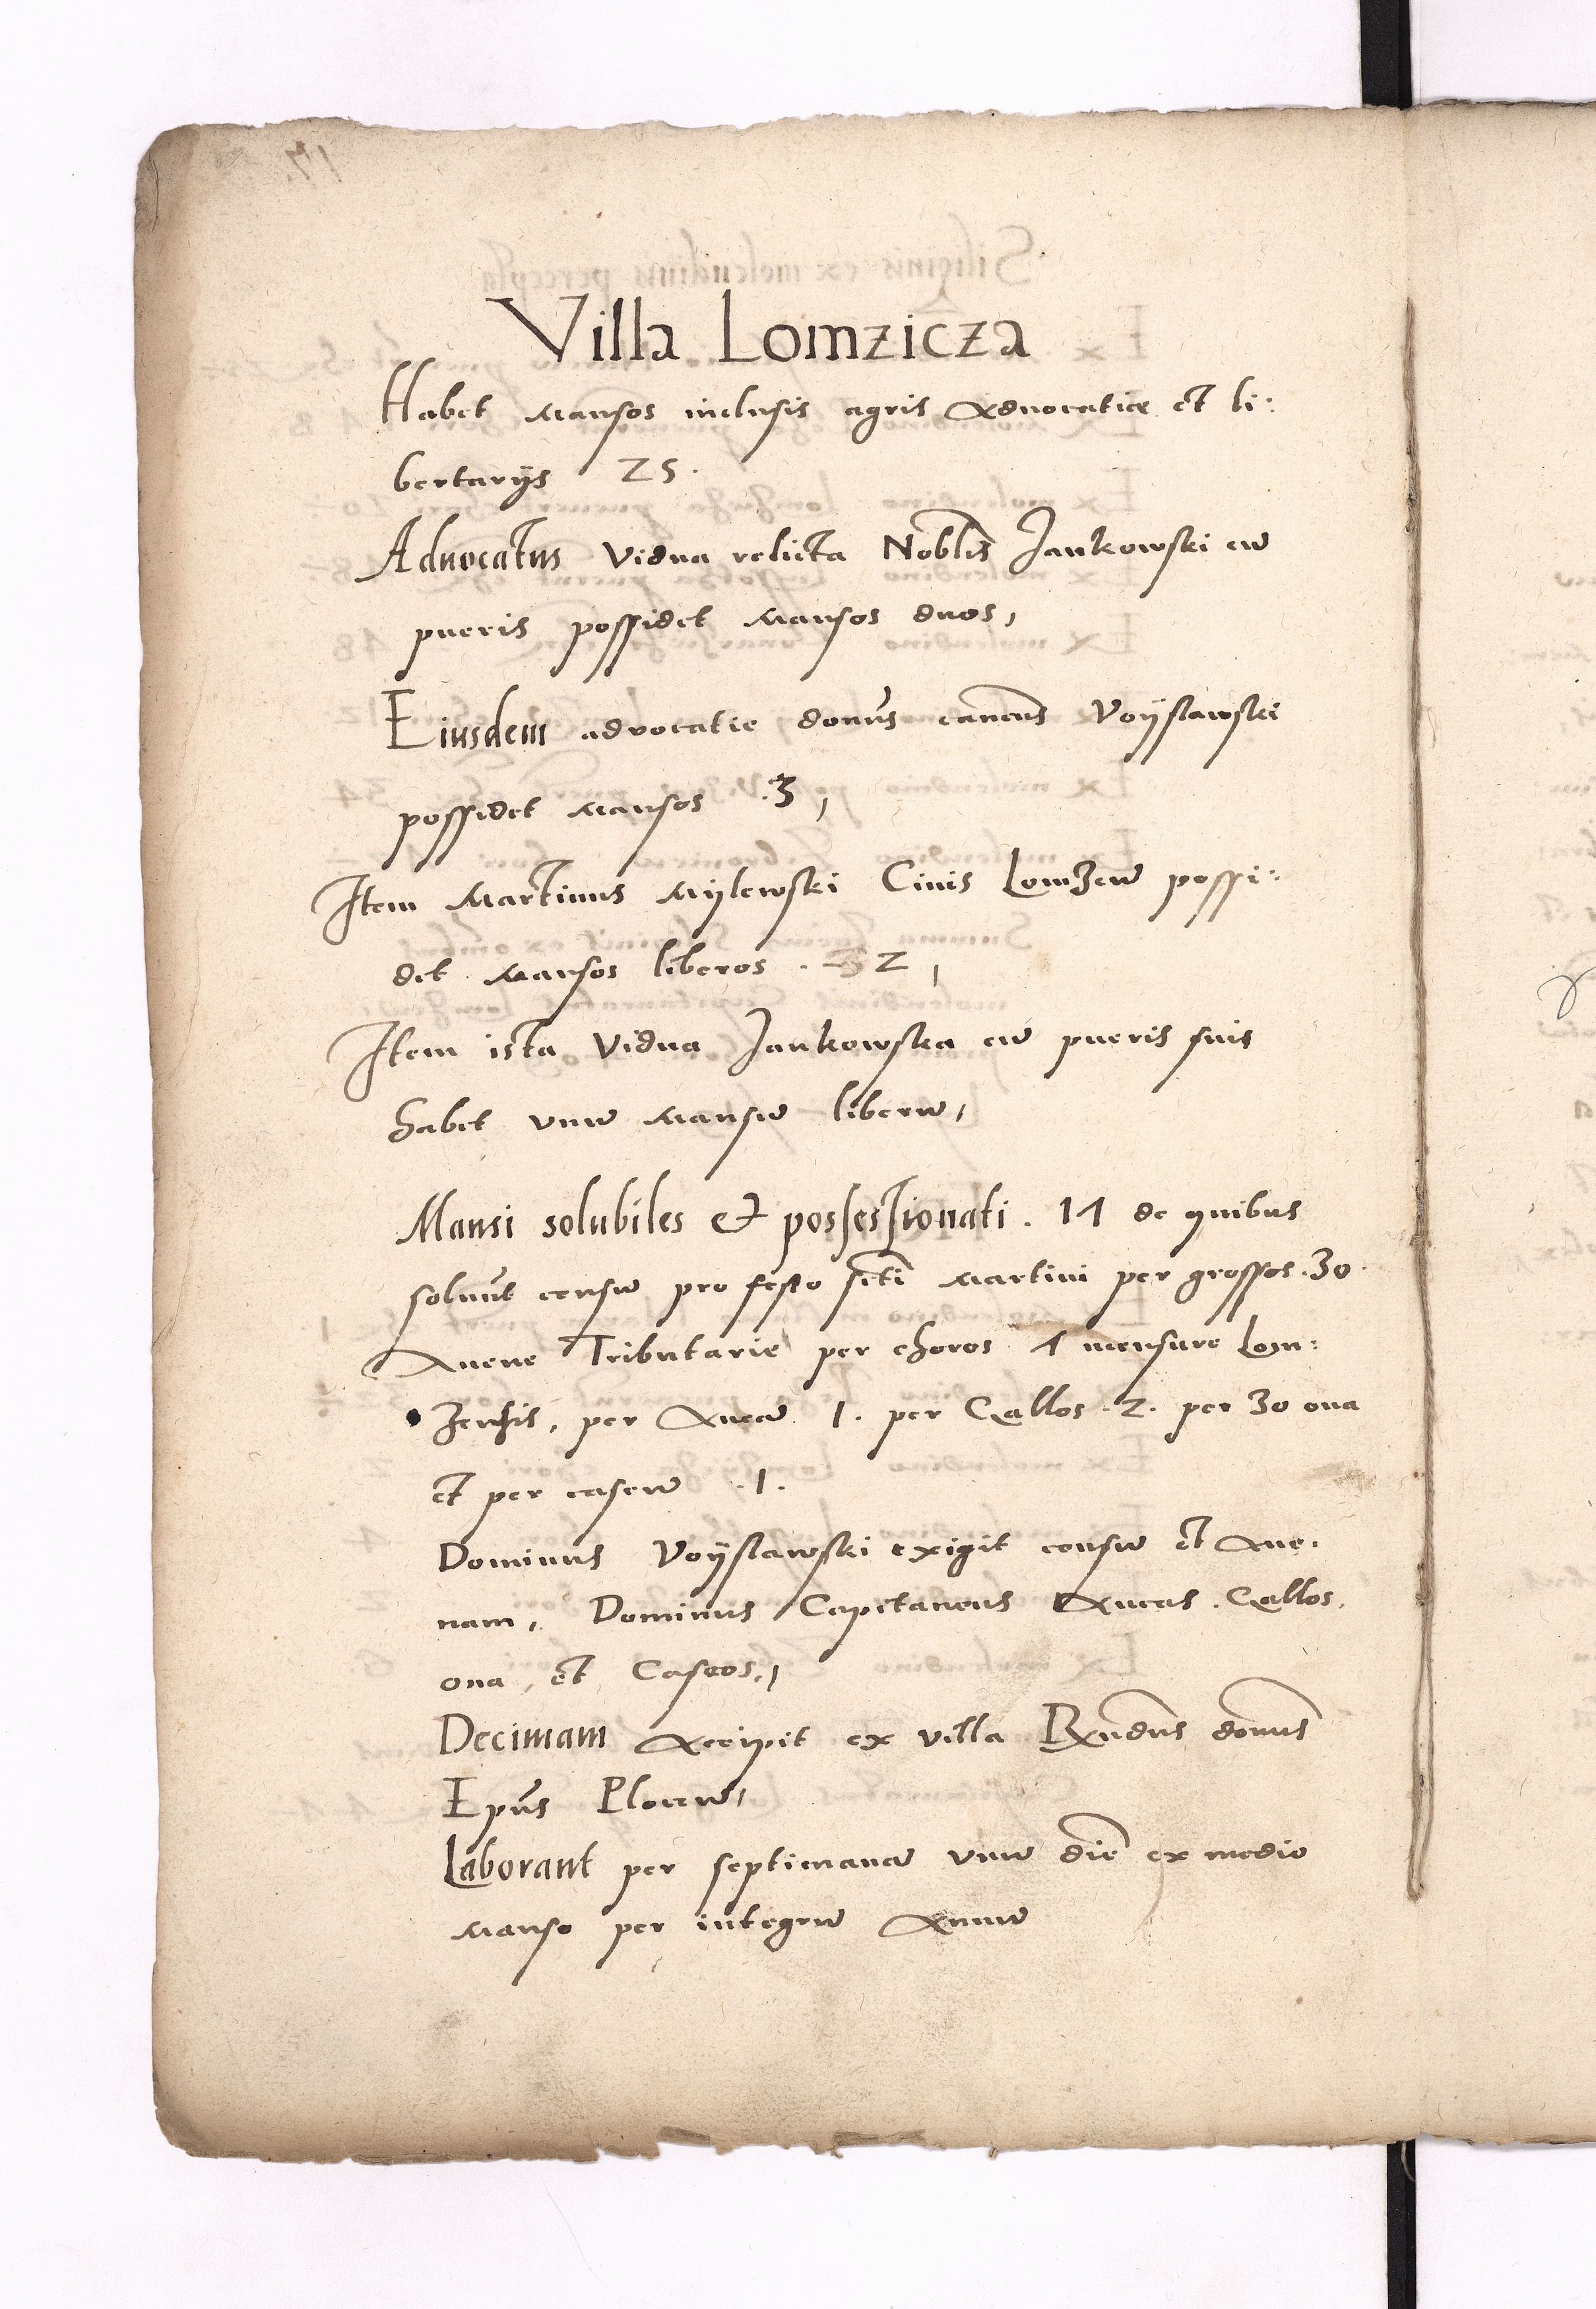 Villa Lomzicza
Habet Mansos inclusis agris Advocatiae et li:
bertarijs 25.
Advocatus Vidua relicta Noblis Jankowski cu
pueris possidet Mansos duos,
Eiusdem advocatie domus Voyslawski
possidet Mansos .3,
Item Martinus Mylewski Civis Lomzen possi:
det Mansos liberos . 2,
Item ista Vidua Jankowska cu pueris suis
habet unu Mansu liberu,
Mansi solubiles et possessionati . 14 de quibus
soluut censu pro festo scti Martini per grossos .30.
Avene Tributarie per choros 4 mensure Lom:
zensis, per Auca 1. per Gallos .2. per 30 ova
et per caseu .1.
Dominus Voyslawski exigit censu et Ave:
nam, Dominus Capitaneus Aucas . Gallos,
ova, et Caseos,,
Decimam Accipit ex villa Rxndus domus
Epus Plocen,
Laborant per septimana unu die ex medio
Manso per integru Annu